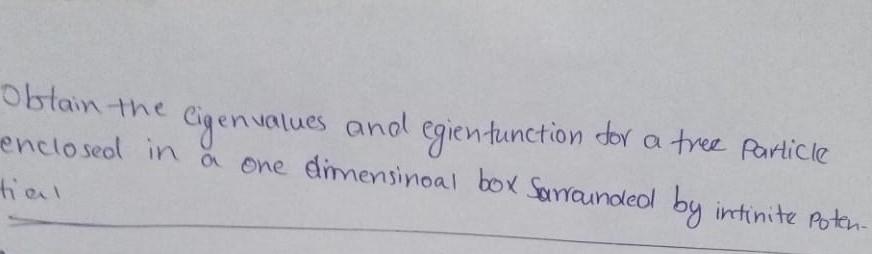 Obtain the eigenvalues and egienfunction for a free Particle
enclosed in a one dimensinoal box Sarrounded by infinite Poten-
tial